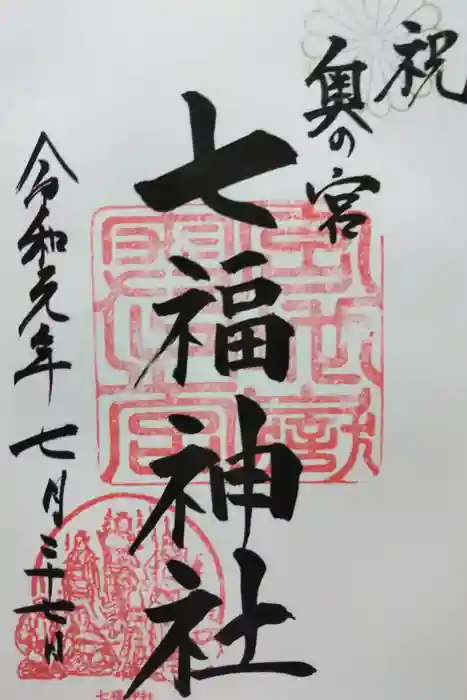 祝
奥の宮
七福神社
令和元年七月二十七日
七福神社